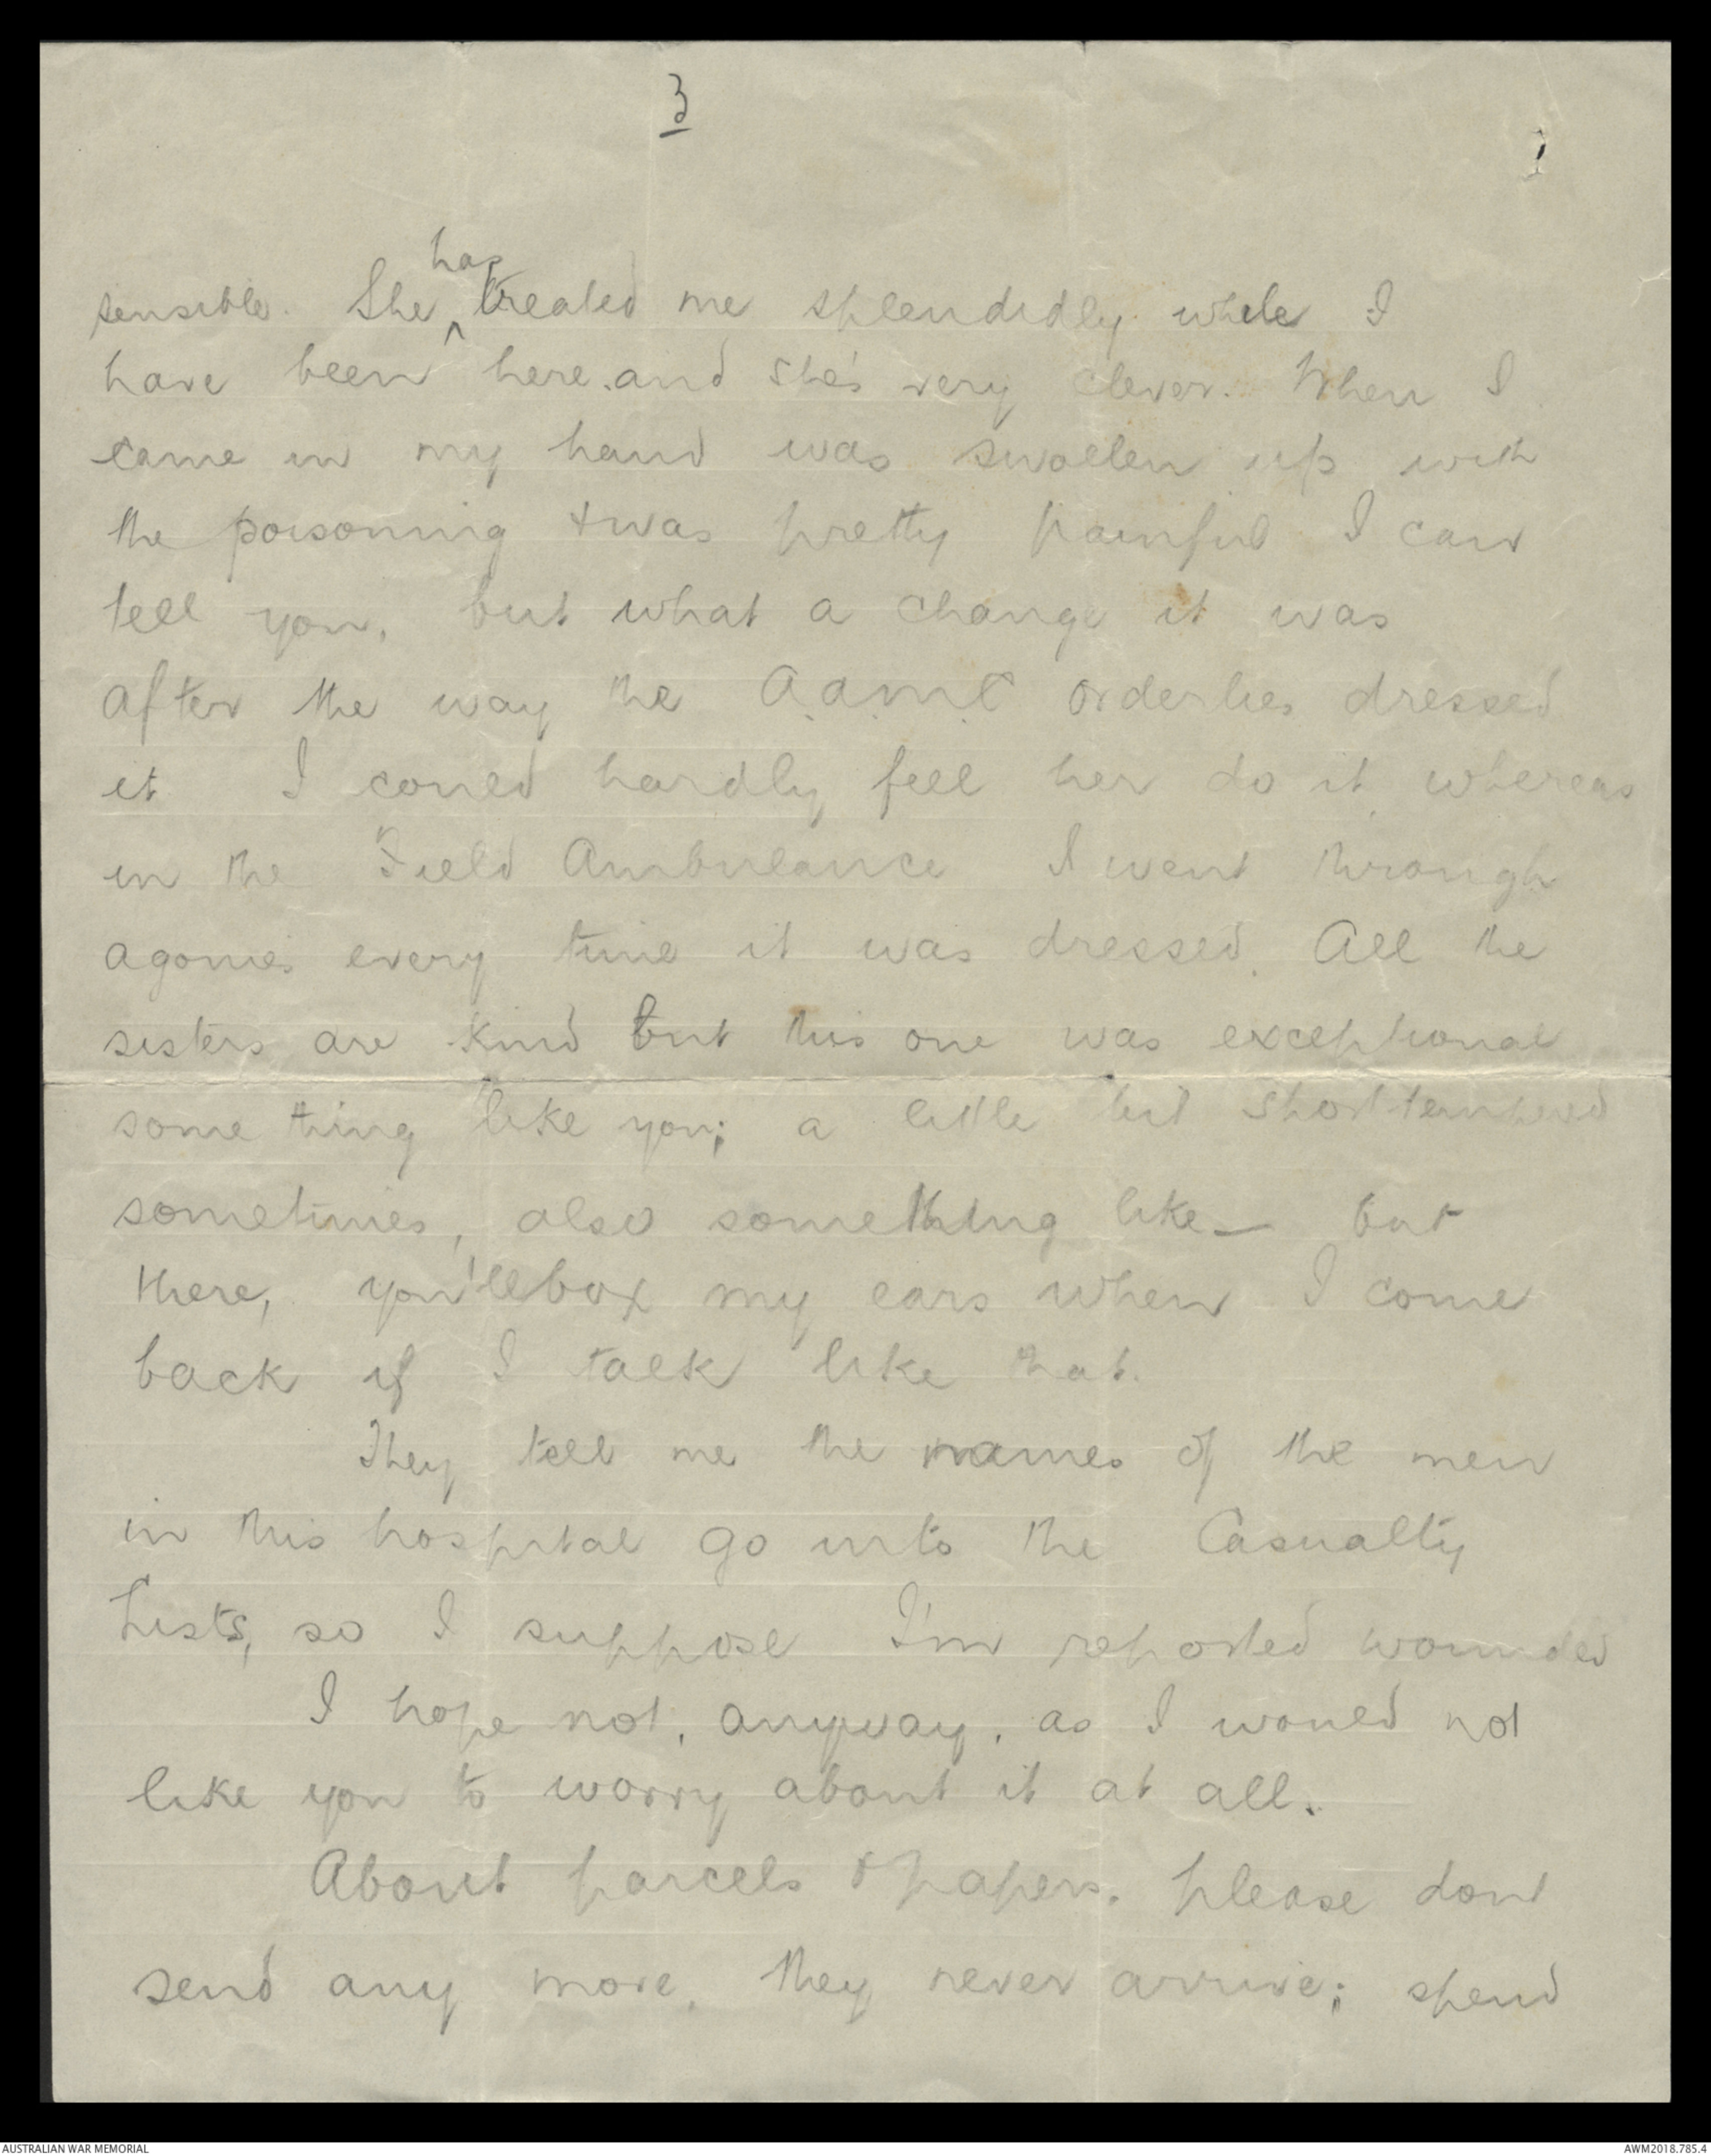 3
sensible. She ^has treated me splendidly while I
have been here. and she's very clever. When I
came in my hand was swollen up with
the poisoning & was pretty painful I can
tell you, but what a change it was
after the way the A.A.M.C orderlies dressed
it I could hardly feel her do it whereas
in the Field Ambulance I went through
agonies every time it was dressed. All the
sisters are kind but this one was exceptional
some thing like you; a little bit short tempered
sometimes, also something like — but
there, you'll box my ears when I come
back if I talk like that.
They tell me the names of the men
in this hospital go into the Casualty
Lists, so I suppose I'm reported wounded
I hope not, anyway, as I would not
like you to worry about it at all.
About parcels & papers. please dont
send any more, they never arrive; spend
AUSTRALIAN WAR MEMORIAL
AWM2018.785.4